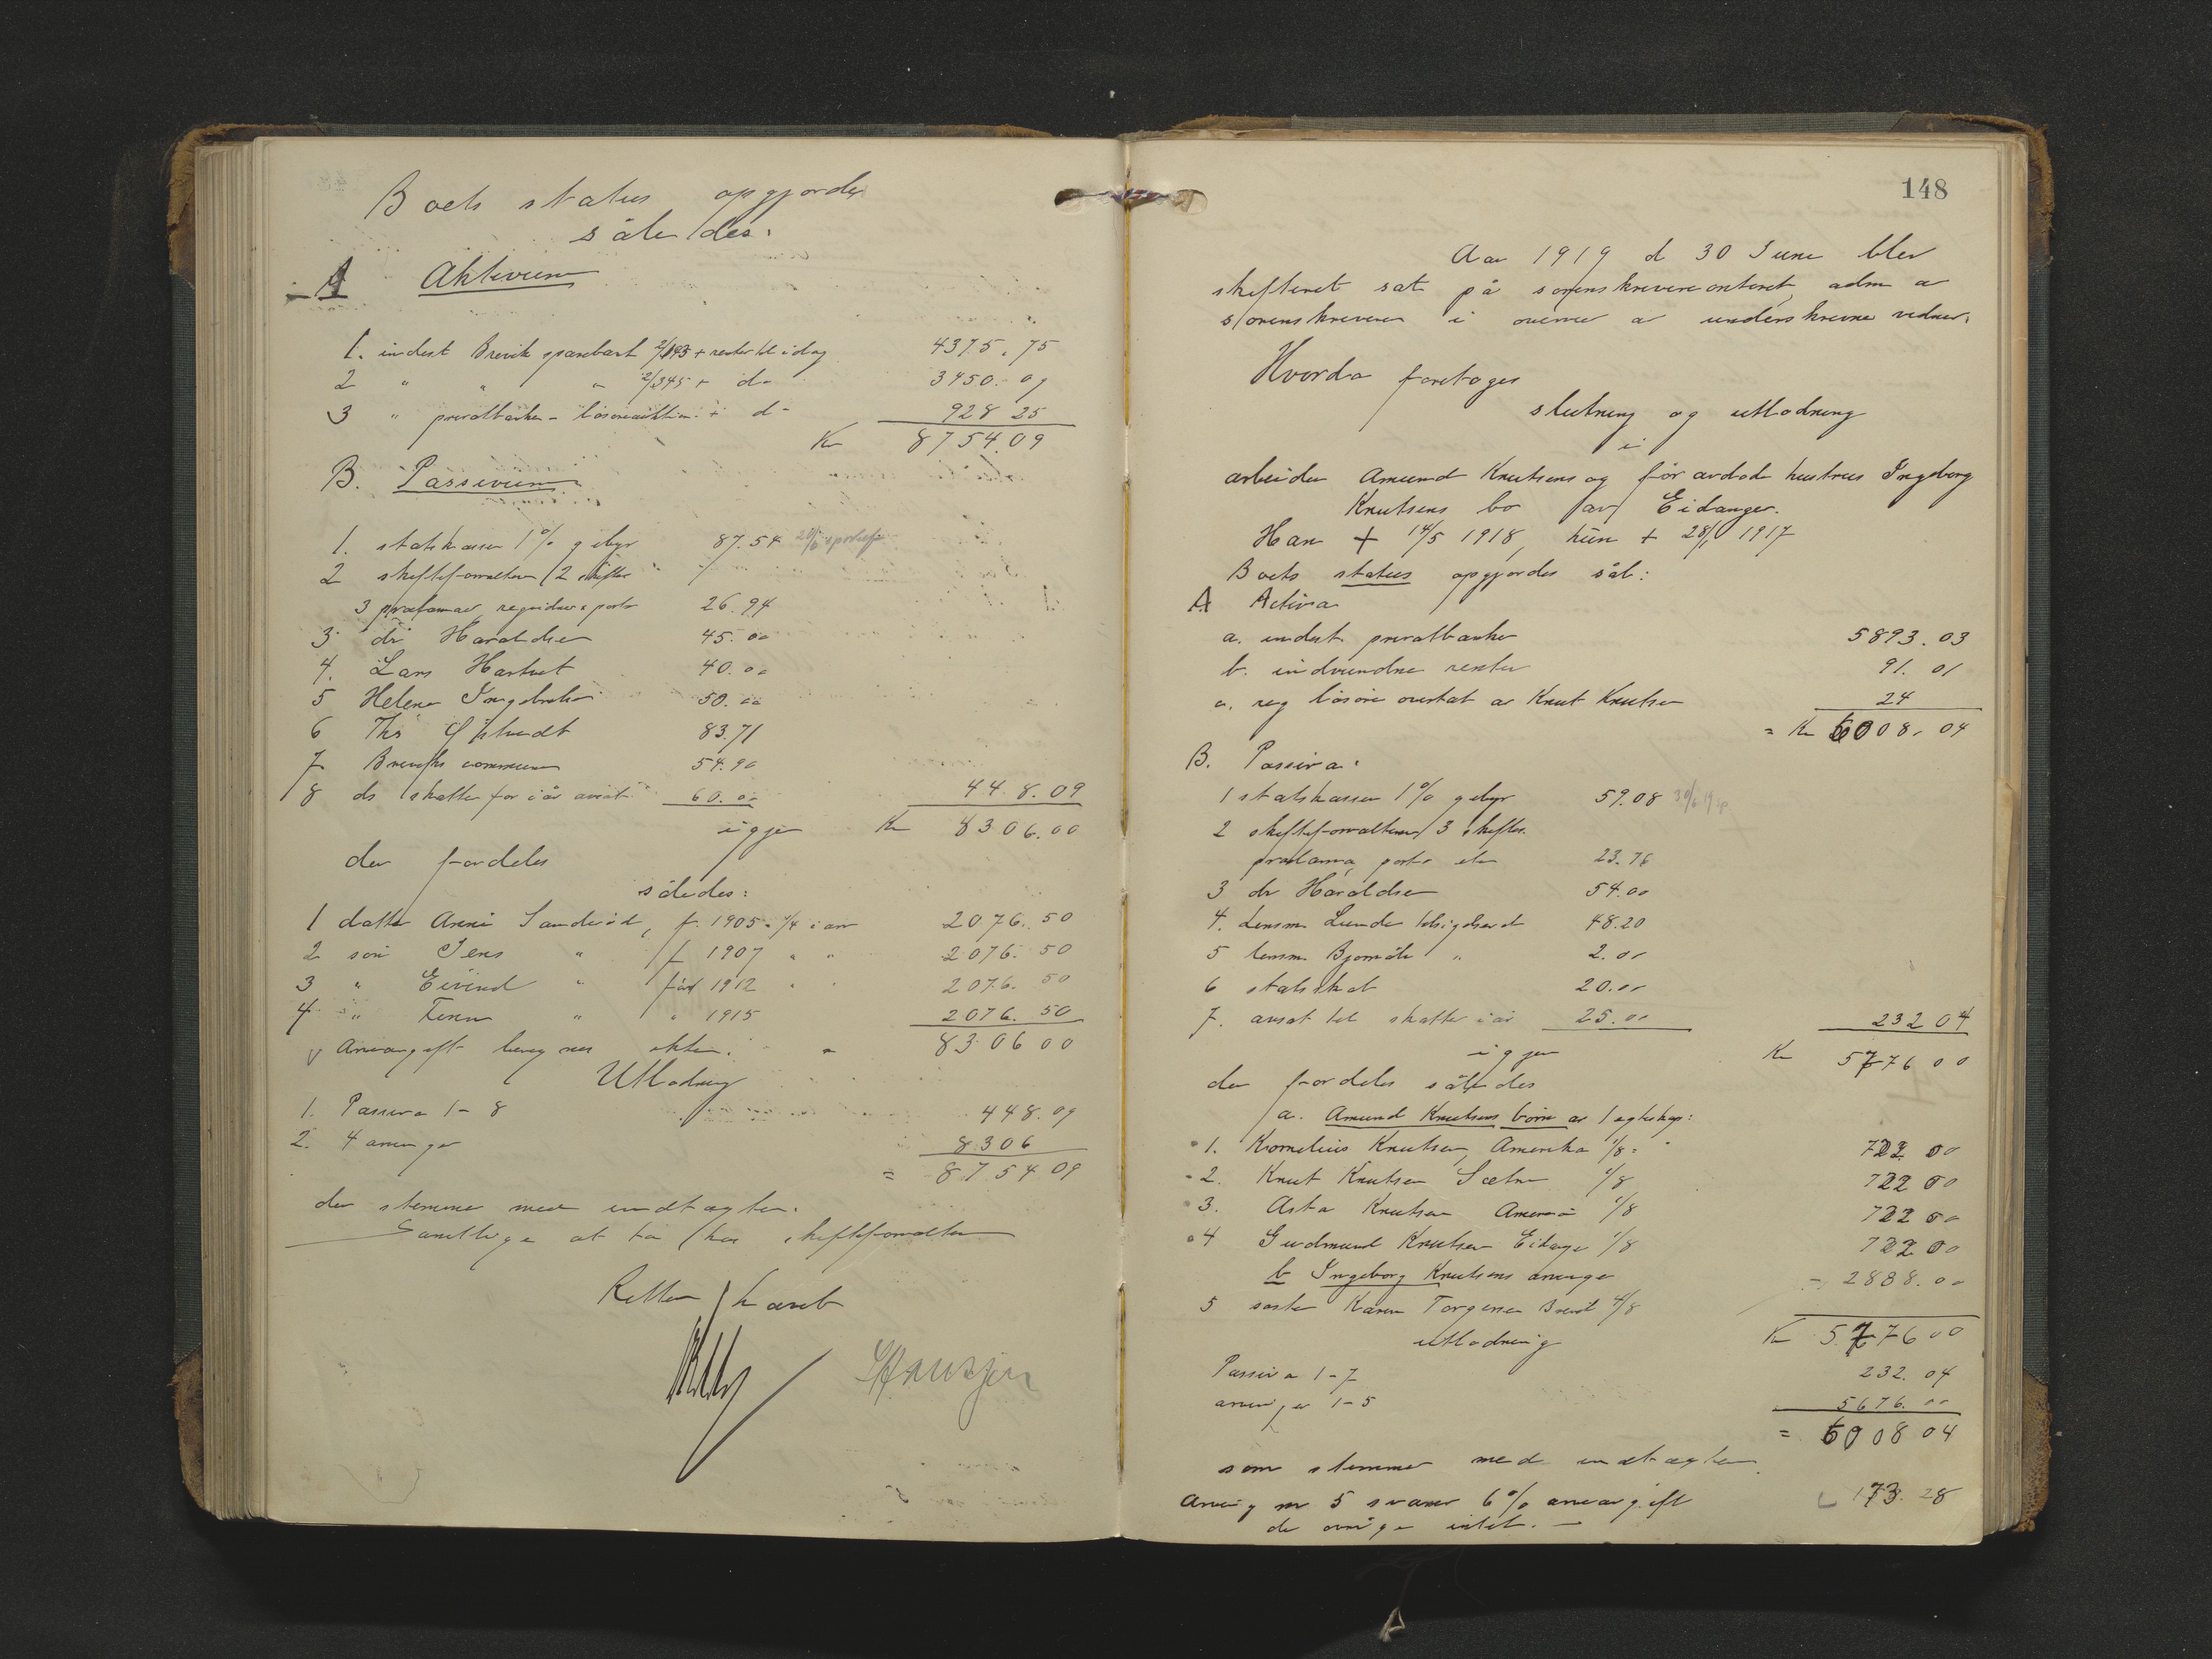 Boets status opgjordes
således:
A Aktivum
1. indest Brevik sparebank 2/193 + renter til idag 4375.75
2 " " " 2/345 + do 3450.09
3 " privatbanken - løsøreauktion + do 928 25
Kr 8754.09
B. Passivum
1. statskassen 1% gebyr 87.54
2 skifteforvalteren 2 skifter
3 proklamaer, regninger & porto 26.94
3 dr Haraldsen 45.00
4. Lars Hartvet 40.00
5 Helene Ingebretsen 50.00
6 Ths 83.71
7 Breviks commune 54.90
8 do skatter for i år ansat 60.00 448.09
igjen Kr 8306.00
der fordeles
således:
1 datter Anni Sandvik, f. 1905 = 1/4 i arv 2076.50
2 søn Jens " f 1907 " " 2076.50
3 " Eivind " fød 1912 " " 2076.50
4 " Finn " " 1915 2076.50
Arveavgift beregnes ikke. 8306 00
Utlodning
1. Passiva 1-8 448.09
2. 4 arvinger 8306
= 8754 09
der stemmer med indtægten.
Samtlige at ta hos skifteforvalteren
Retten hævet
148
Aar 1919 d 30 June blev
skifteret sat på sorenskriverkontoret, adm av
sorenskriveren i overvær av underskrevne vidner.
Hvorda foretoges
slutning og utlodning
i
arbeider Amund Knutsens og før avdøde hustrus Ingeborg
Knutsens bo av Eidanger.
Han + 14/5 1918, hun + 28/1 1917
Boets status opgjordes sål:
A Activa
a. indest. privatbanken 5893.03
b. indvundne renter 91.01
c. reg løsøre overtat av Knut Knutsen 24
= Kr 6008.04
B. Passiva:
1 statskassen 1% gebyr 59.08 30/6 19
2 skifteforvalteren 3 skifter.
proklama, porto etc 23.76
3 dr Haraldsen 54.00
4. Lensm. Lunde 48.20
5 lensm. " 2.00
6 statsskat 20.00
7. ansat til skatter i år 25.00 232 04
igjen Kr 5776 00
der fordeles således
a. Amund Knutsens børn av 1 egteskap:
1. Kornelius Knutsen, Amerika 1/8 = 722 00
2. Knut Knutsen Sætre 1/8 722 00
3. Asta Knutsen Amerika 1/8 722 00
4 Gudmund Knutsen Eidanger 1/8 722 00
b Ingeborg Knutsens arvinge
5 søster Karen Torgersen Brevik 4/8 = 2888.00
Kr 5776 00
utlodning
Passiva 1-7 232.04
arvinger 1-5 5676.00
= 6008 04
som stemmer med indtægten
Arving nr 5 svarer 6% arveavgift 173.28
de øvrige intet. —